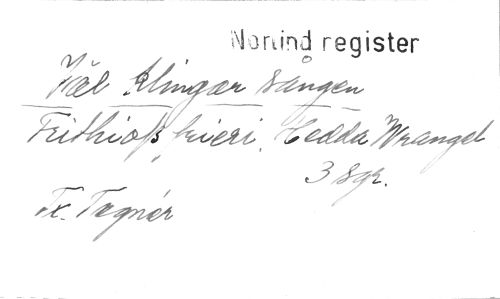 Nortind register
Väl klingar sången
Frithiofs frieri. Hedda Wrangel
3 sgr.
Tx. Tegnér